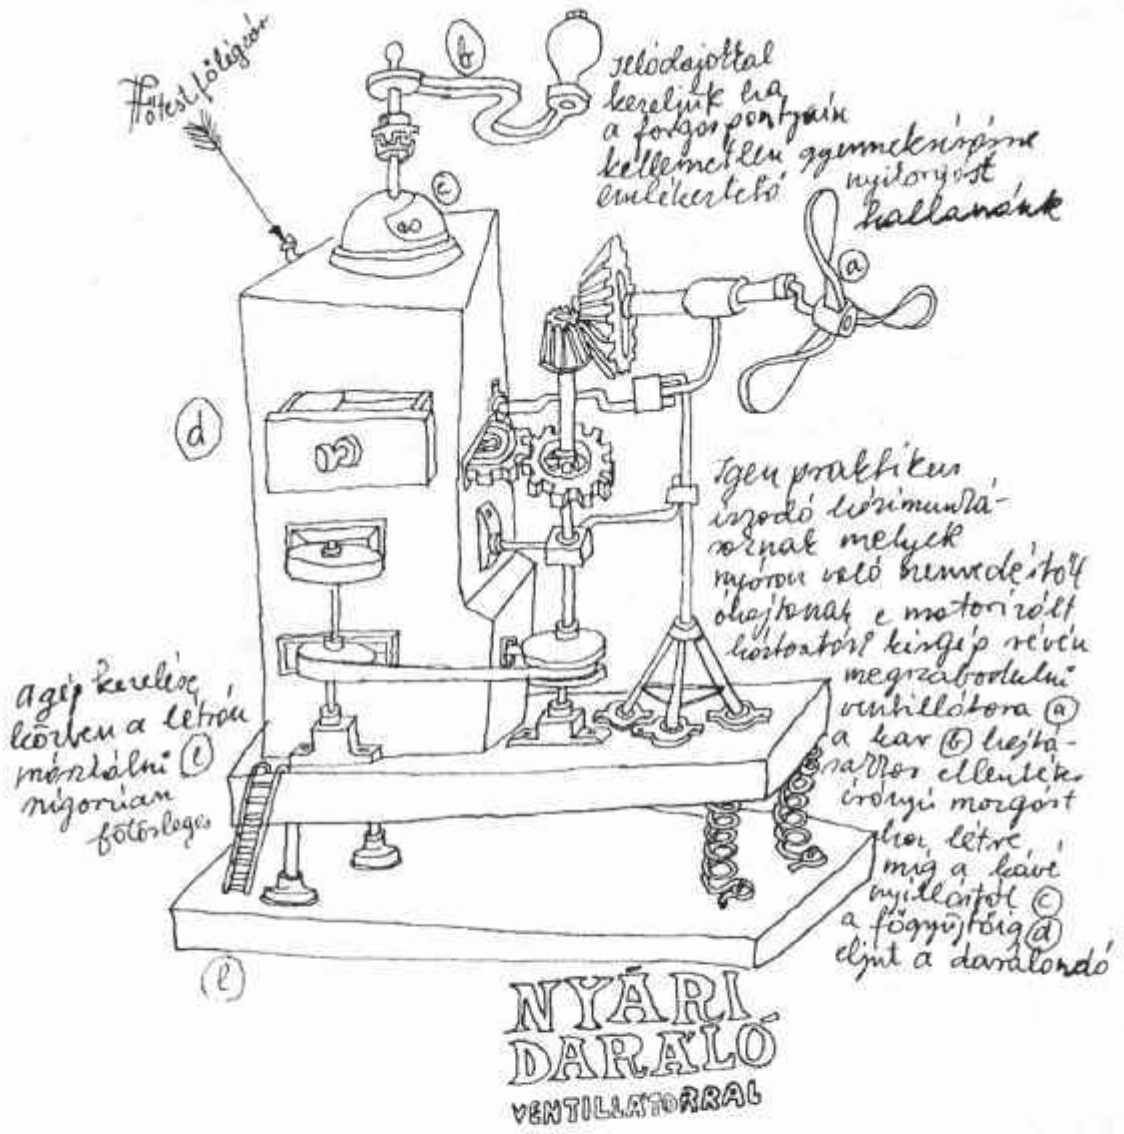 b
Illóolajokkal
kezeljük ha
a forgáspontjain
kellemetlen gyermeksírásra
emlékeztető nyikorgást
hallanánk
c
a
d
Igen praktikus
izzadó kézimunká-
soknak melyek
nyáron való szenvedéstől
óhajtanak e motorizált
háztartási kisgép révén
megszabadulni
ventillátora a
a kar b hajtá-
sához
irányú mozgást
hoz létre
míg a kávé
nyílástól c
a főgyűjtőig d
eljut a darálandó
A gép kezelése
közben a létrán
mászkálni e
szigorúan
fölösleges
e
NYÁRI
DARÁLÓ
VENTILLÁTORRAL